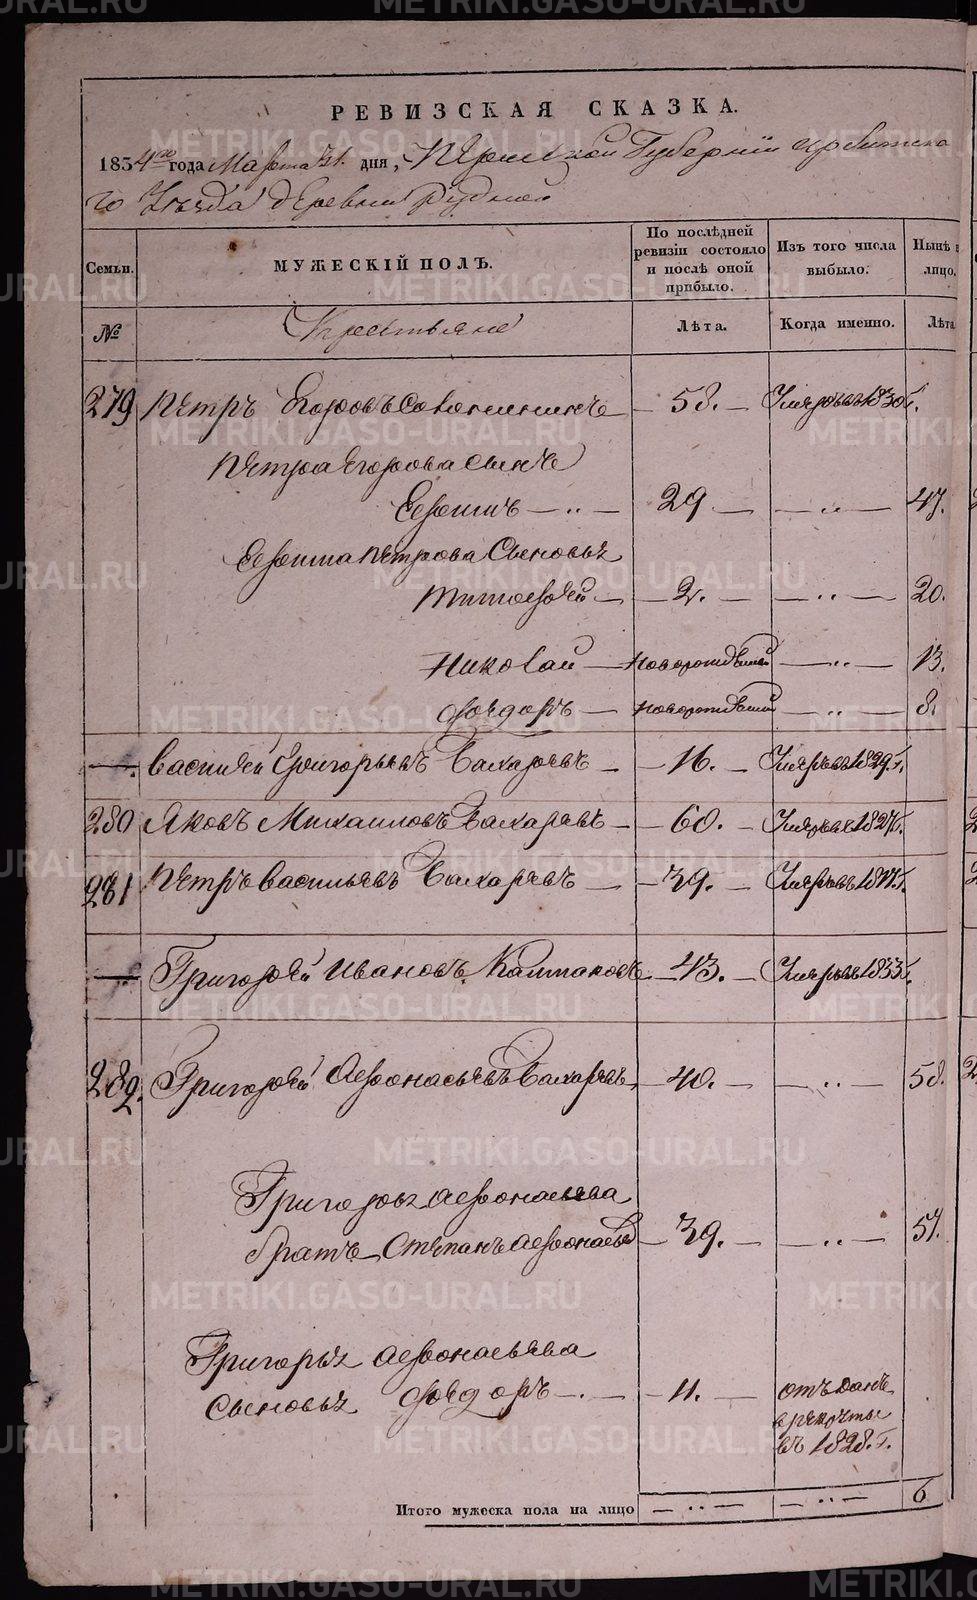 РЕВИЗСКАЯ СКАЗКА.
1834го года Марта 21. дня, Пермской Губернии Ирбитска
го Уезда деревни Рудной
Семьи. МУЖЕСКІЙ ПОЛЪ. По послѣдней ревизіи состояло и послѣ оной прибыло. Изъ того числа выбыло. Нынѣ на лицо.
№ Крестьяне Лѣта. Когда именно. Лѣта
279 Петръ Егоровъ — 58. — Умеръ въ 1830 г.
Петра Егорова сынъ
Ефимъ — 29 — 47.
Ефима Петрова Сыновья
Тимофей — 2. — 20.
Николай — новорожденный — 13.
Федоръ — новорожденный — 8.
Василей Григорьевъ Бахаревъ — 16. — Умеръ въ 1829 г.
280 Яковъ Михаиловъ Бахаревъ — 60. — Умеръ въ 1827 г.
281 Петръ Васильевъ Бахаревъ — 39. — Умеръ въ 1817 г.
Григорей Ивановъ — 43. — Умеръ въ 1833 г.
282. Григорей Афонасьевъ Бахаревъ — 40. — 58.
Григорья Афонасьева
братъ Степанъ Афонасьевъ — 39. — 57.
Григорья Афонасьева
Сыновья Федоръ — 11. — отъданъ
в рекруты
въ 1828. г.
Итого мужеска пола на лицо 6
METRIKI.GASO-URAL.RU